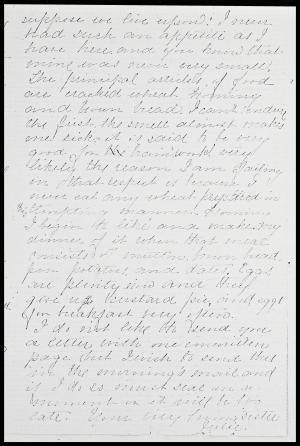 suppose we live upon? I never
had such an appetite as I
have here and you know that
mine was never very small.
The principal articles of food
are cracked wheat, hominy
and brown bread. I can't endure
the first, the smell almost makes
me sick. it is said to be very
good for the brain work very
likely the reason I am failing
in that respect is because I
never eat any wheat prepared in
tempting manner. Hominy
I begin to like and make my
dinner of it when that meal
consists of mutton, brown bread
potatoes, and dates. Eggs
are plenty now and they
give us custard pie, and eggs
for breakfast very often.
I do not like to send you
a letter with one unwritten
page but I wish to send this
in the morning's mail and
if I do so must seal in a
moment or it will be too
late. Your very
Julie.